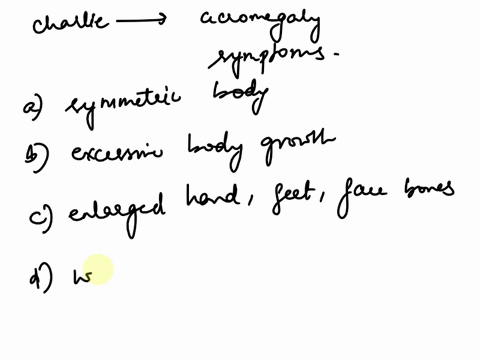 charlie → acromegaly
symptoms.
a) symmetric body
b) excessive body growth
c) enlarged hand, feet, face bones
d) w